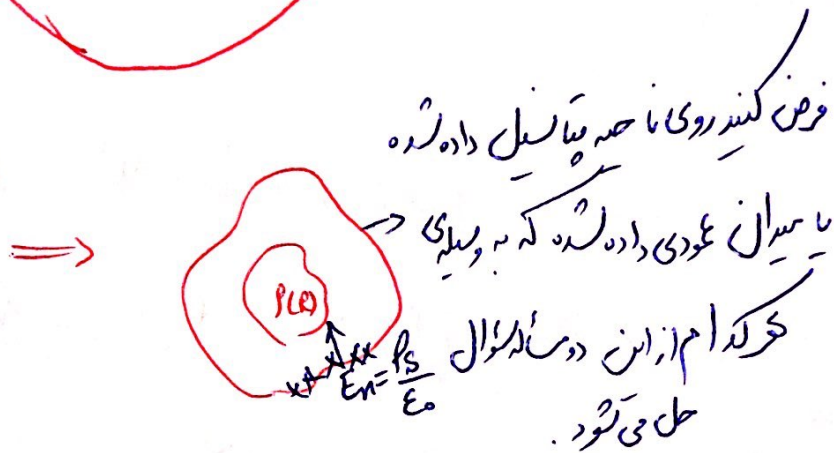 فرض کنید روی ناحیه پتانسیل داده شده
یا میدان عمودی داده شده که به وسیله‌ی
هر کدام از این دو مسأله سؤال
حل می‌شود.
ρ(R)
En = ρs/ε₀